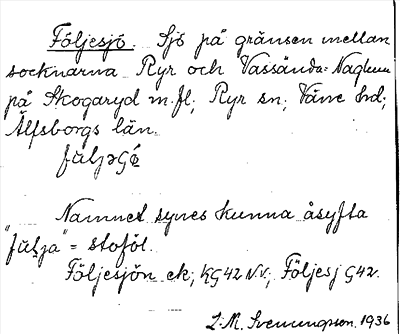 Följesjö. Sjö på gränsen mellan
socknarna Ryr och Vassända-Naglum
på Skogaryd m.fl; Ryr sn; Väne hd;
Älfsborgs län.
Namnet synes kunna åsyfta
= stoföl.
Följesjön ek; KG42 NV; Följesj G42.
L.M. Svenungson 1936